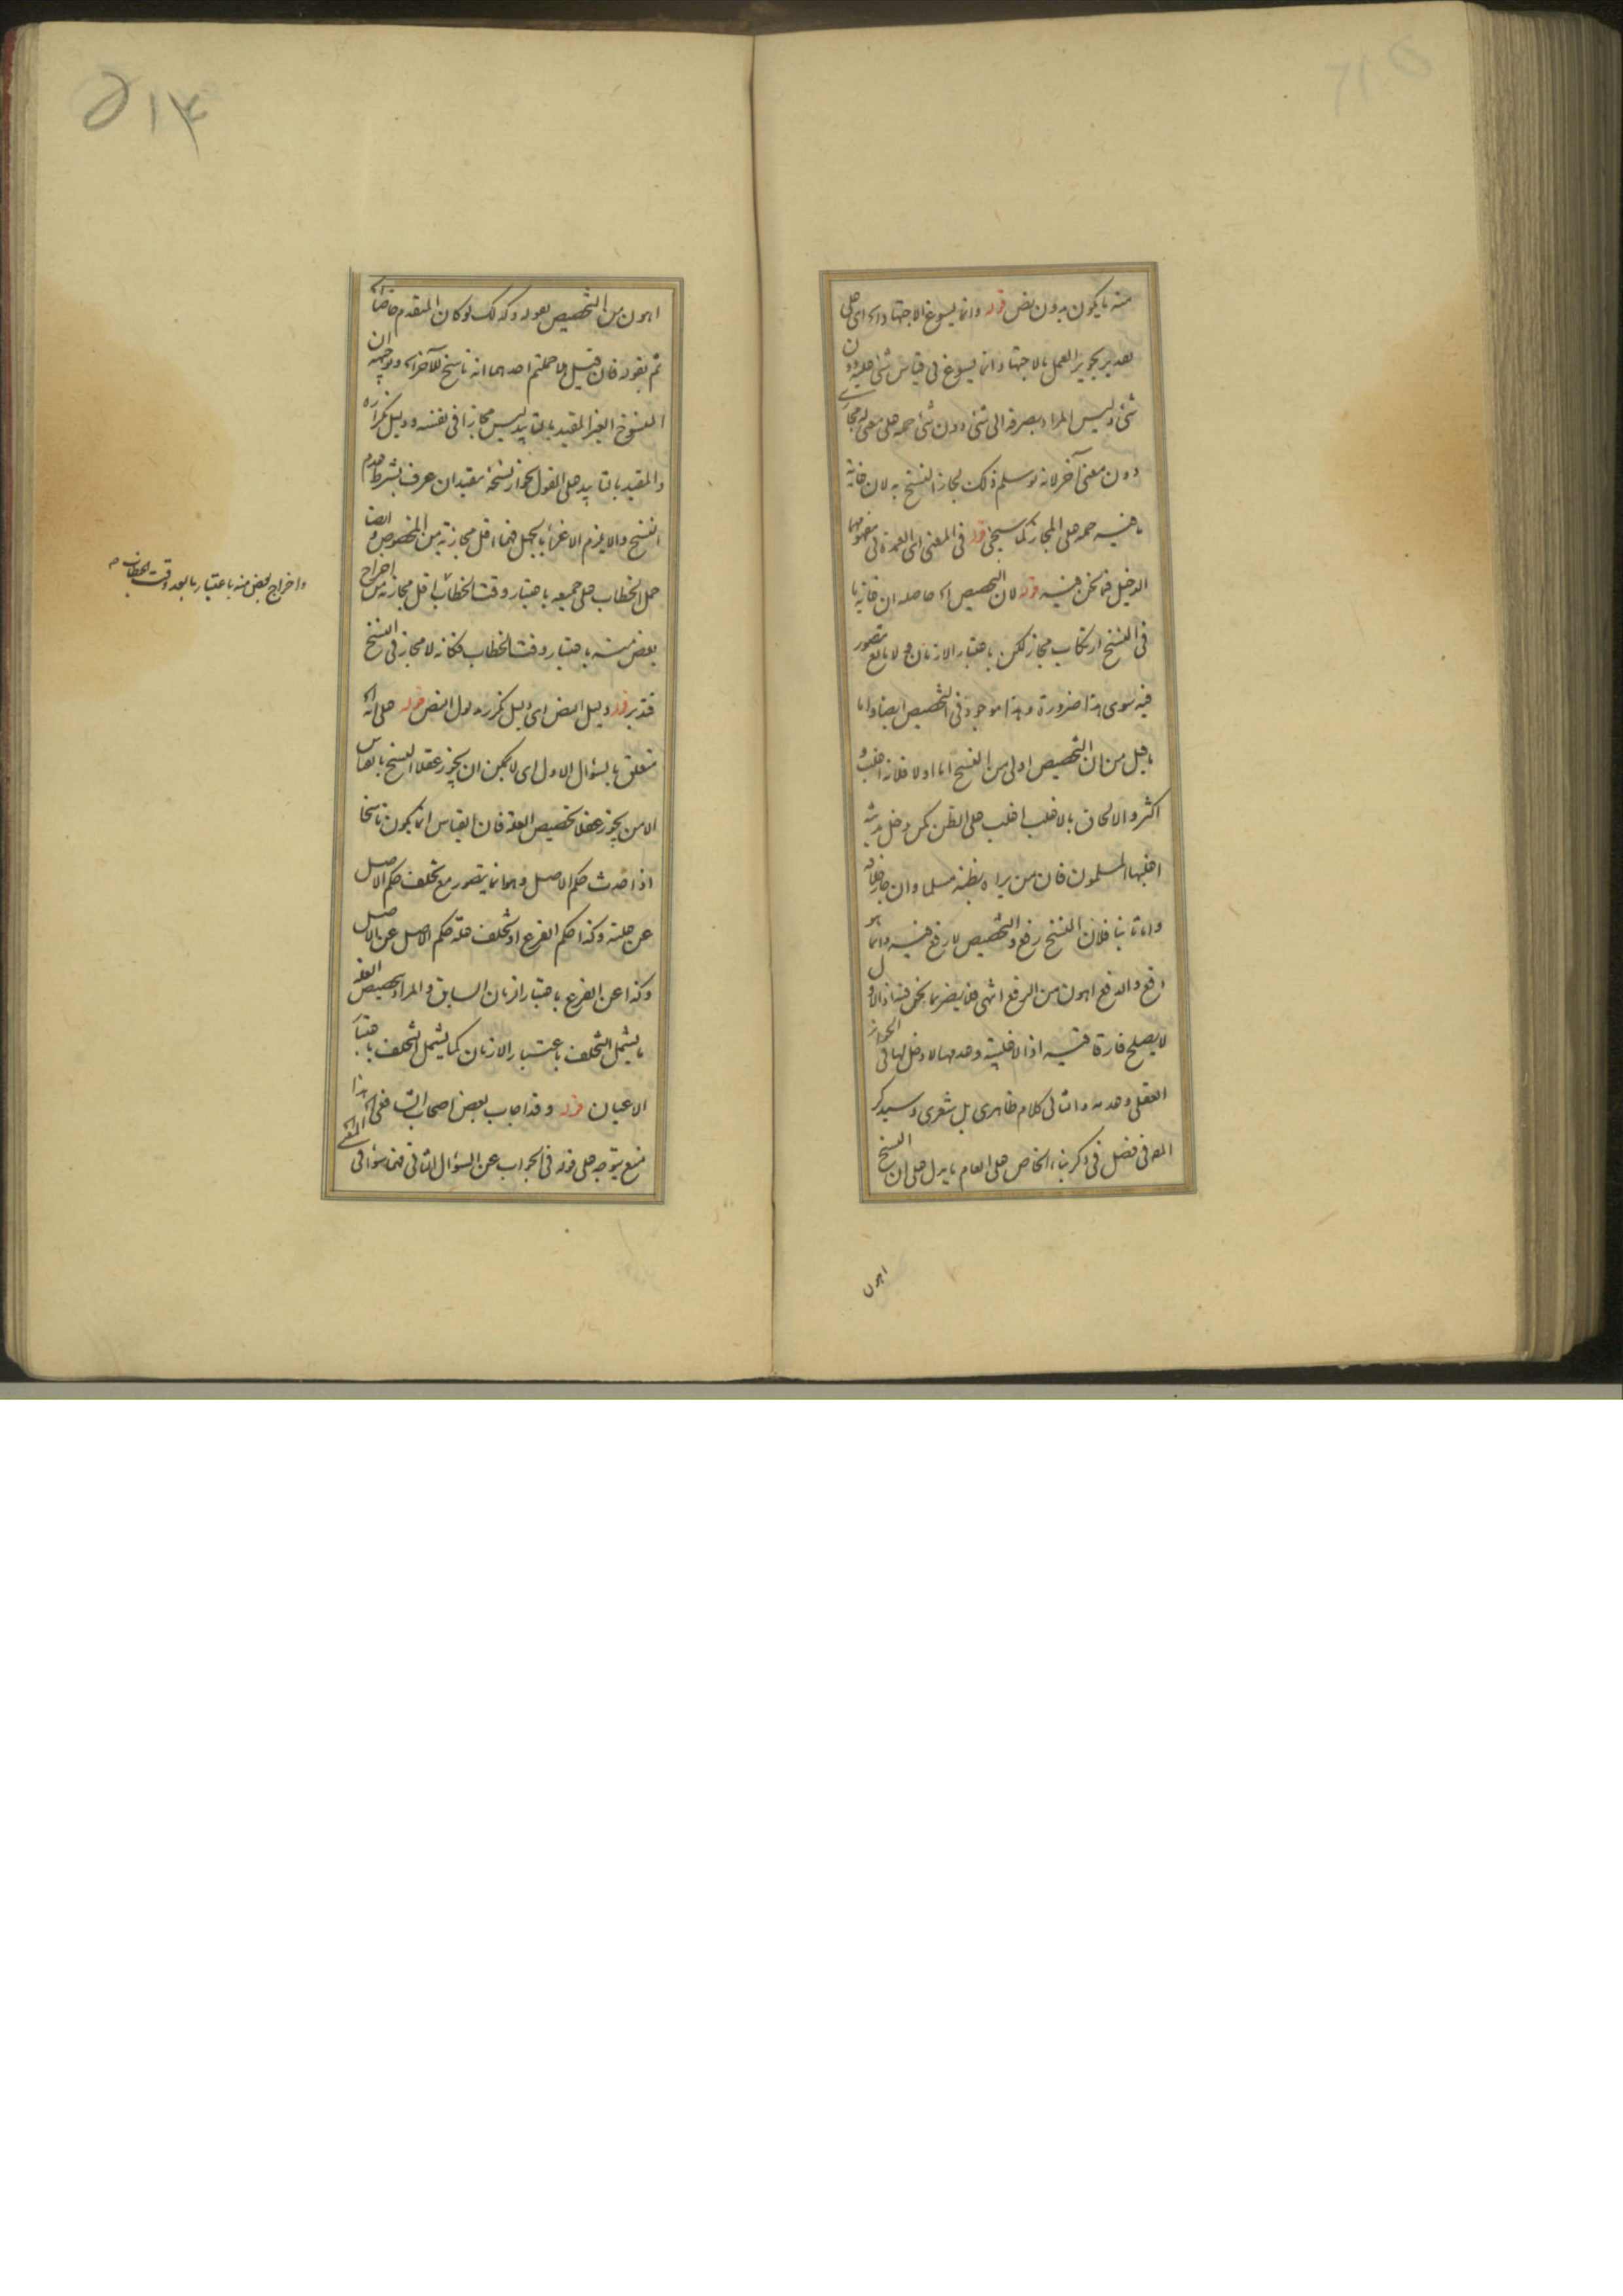 منه ما يكون بدون نص قوله وانما يسوغ الاجتهاد الخ اى على
تقدير تجويز العمل بالاجتهاد انما يسوغ فى قياس شئ عليه دون
شئ وليس المراد بصرفه الى شئ دون شئ حمله على معنى له مجازى
دون معنى آخر لانه لو سلم ذلك لجاز النسخ به لان غاية
ما فيه حمله على المجاز كما سيجئ قوله فى المعنى اى العمدة فى مفهومهما
الدخيل فيما نحن فيه قوله لان التخصيص الخ حاصله ان غاية ما
فى النسخ ارتكاب مجاز لكن باعتبار الازمان ولا مانع يتصور
فيه سوى هذا ضرورة وهذا موجود فى التخصيص ايضا واما
ما قيل من ان التخصيص اولى من النسخ اما اولا فلانه اغلب و
اكثر والالحاق بالاغلب اغلب على الظن كمن دخل مدينة
اغلبها المسلمون فان من يراه يظنه مسلما وان جاز خلافه
واما ثانيا فلان النسخ رفع والتخصيص لا رفع فيه وانما هو
دفع والدفع اهون من الرفع انتهى فلا يضر بما نحن فيه اذ الاول
لا يصلح فارقا فيه اذ الاغلبية وعدمها لا دخل لها فى الجواز
العقلى وعدمه والثانى كلام ظاهرى بل شعرى وسيذكر
المص فى فصل فى ذكر بناء الخاص على العام ما يدل على ان النسخ
اهون
٥١٣
اهون من التخصيص بقوله وكذلك لو كان المتقدم خاصا الخ
ثم بقوله فان قيل هلا حملتم احدهما انه ناسخ للآخر الخ ووجهه ان
المنسوخ الغير المقيد بالتابيد ليس مجازا فى نفسه ودليل تكراره
والمقيد بالتابيد على القول بجواز نسخه مقيد ان عرف بشرط عدم
النسخ والا يلزم الاغراء بالجهل فهما اقل مجازية من المخصوص وايضا
حمل الخطاب على جميعه باعتبار وقت الخطاب اقل مجازية من اخراج
بعض منه باعتبار وقت الخطاب فكانه لا مجاز فى النسخ
واخراج بعض منه باعتبار ما بعد وقت الخطاب صح
فتدبر قوله دليل النص اى دليل تكرر مدلول النص قوله على انه الخ
متعلق بالسؤال الاول اى لا يمكن ان يجوز عقلا النسخ بالقياس
الا من يجوز عقلا تخصيص العلة فان القياس انما يكون ناسخا
اذا حدث حكم الاصل وهو انما يتصور مع تخلف حكم الاصل
عن علته وكذا حكم الفرع او تخلف علة حكم الاصل عن الاصل
وكذا عن الفرع باعتبار ازمان السابق والمراد بتخصيص العلة
ما يشمل التخلف باعتبار الازمان كما يشمل التخلف باعتبار
الاعيان قوله وقد اجاب بعض اصحاب الشافعى الخ هذا
منع يتوجه على قوله فى الجواب عن السؤال الثانى